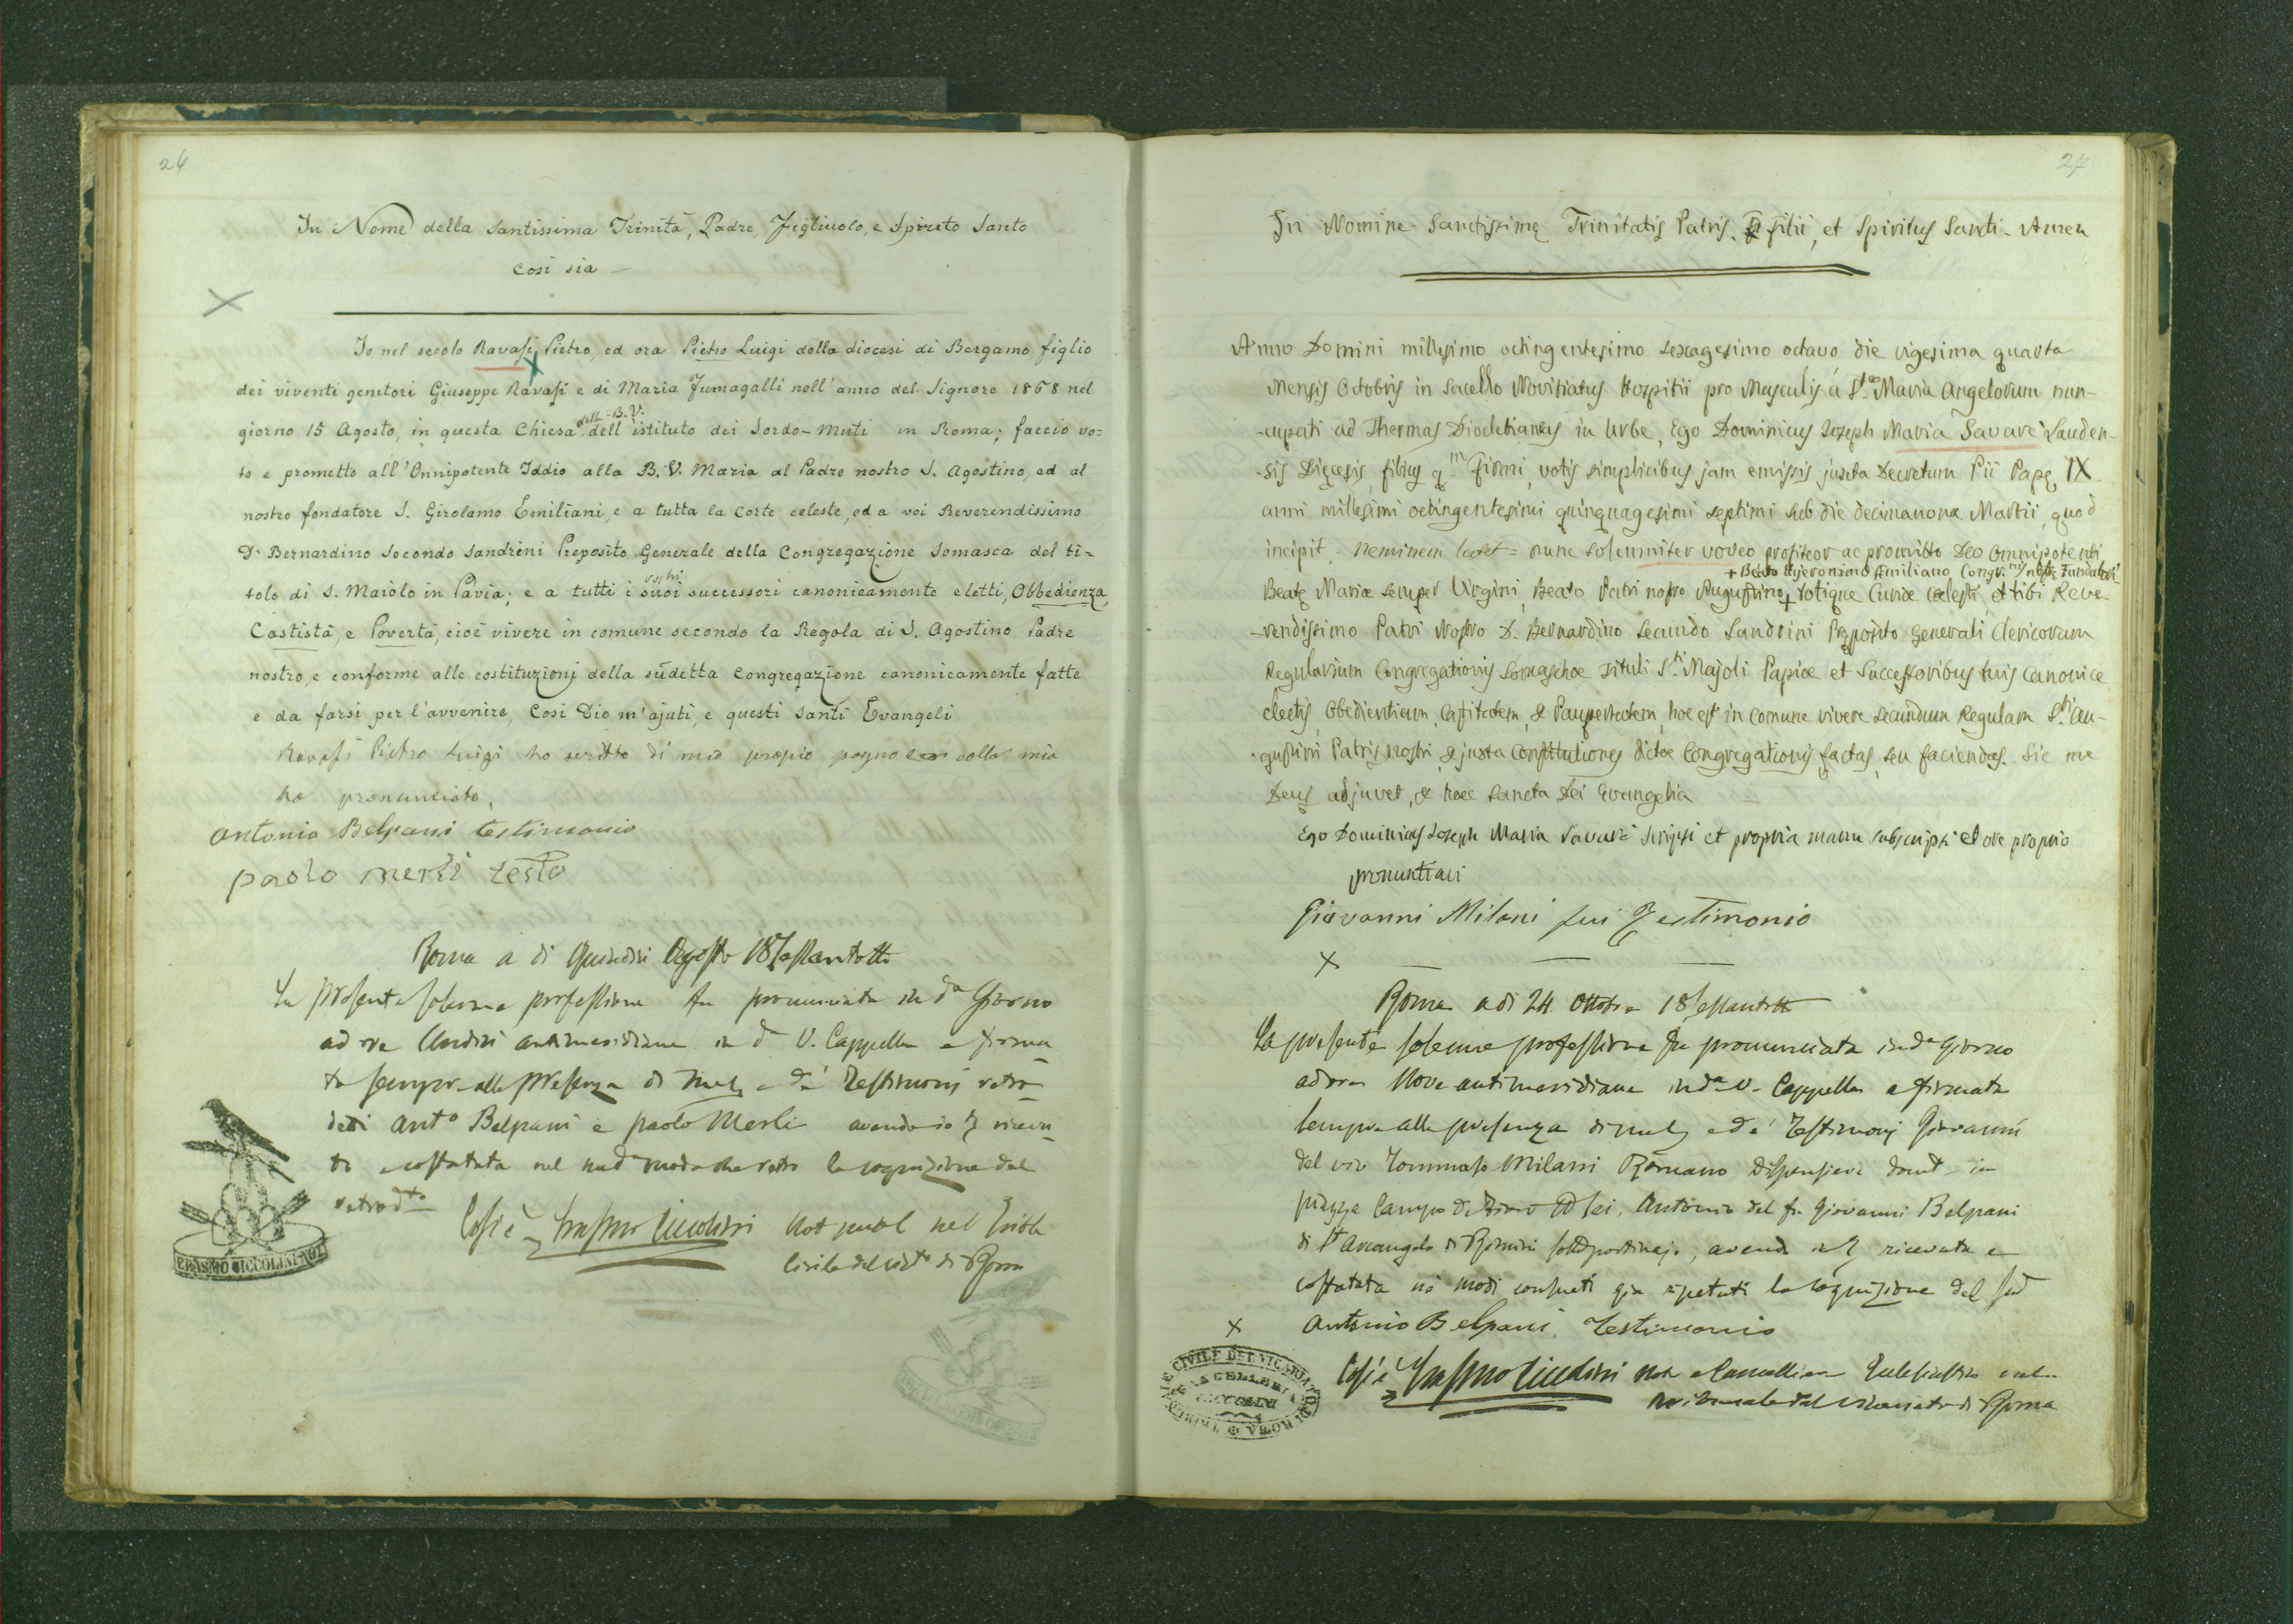 26
In Nome della Santissima Trinità, Padre, Figliuolo, e Spirito Santo
Così sia
Io nel secolo Ravasi Pietro, ed ora Pietro Luigi della diocesi di Bergamo figlio
dei viventi genitori Giuseppe Ravasi e di Maria Fumagalli nell'anno del Signore 1868 nel
giorno 15 Agosto, in questa Chiesa B.V. dell'istituto dei Sordo-Muti in Roma; faccio vo=
to e prometto all'Onnipotente Iddio alla B. V. Maria al Padre nostro S. Agostino, ed al
nostro fondatore S. Girolamo Emiliani, e a tutta la Corte celeste, ed a voi Reverendissimo
Dn Bernardino Secondo Sandrini Preposito Generale della Congregazione Somasca del ti-
tolo di S. Maiolo in Pavia; e a tutti i suoi vostri successori canonicamente eletti, Obbedienza,
Castistà, e Povertà, cioè vivere in comune secondo la Regola di S. Agostino Padre
nostro, e conforme alle costituzioni della sudetta Congregazione canonicamente fatte
e da farsi per l'avvenire, Così Dio m'ajuti, e questi Santi Evangeli
Ravasi Pietro Luigi ho scritto di mio propio pogno colla mia
ho pronunciato,
Antonio Belpani testimonio
paolo merli testo
Roma a di Quindici Agosto 18Sessantotto
La presente solenne professione fu pronunciata in da Giorno
ad ore Undici antimeridiane in da V. Cappella e firma
ta sempre alla presenza di me e de' Testimonj retro
detti Anto Belpani e paolo Merli avendo io ricevu
to e costatata nel modo che retro la cognizione del
retrodto
Così è Erasmo Ciccolini Not publ nel Trible
Civile del Victo di Roma
ERASMO CICCOLINI NOT
27
In Nomine Sanctissimę Trinitatis Patris, Filii, et Spiritus Sancti. Amen
Anno Domini millesimo octingentesimo sexagesimo octavo die vigesima quarta
Mensis Octobris in Sacello Novitiatus Hospitii pro Masculis á Sta Maria Angelorum nun-
-cupati ad Thermas Diocletianas in Urbe, Ego Dominicus Joseph Maria Savarè Lauden-
-sis Dięcesis, filius qm Firmi, votis simplicibus jam emissis juxta Decretum Pii Papę IX
anni millesimi octingentesimi quinquagesimi septimi sub die decimanona Martii, quod
incipit = Neminem latet = nunc solemniter voveo profiteor ac promitto Deo Omnipotenti
+ Beato Hyeronimo Æmiliano Congr.nis nostrę Fundatori
Beatę Mariæ semper Virgini, Beato Patri nostro Augustino + totique Curiæ cælesti, et tibi Reve-
-rendissimo Patri Nostro D. Bernardino Secundo Sandrini Pręposito Generali Clericorum
Regularium Congregationis Somaschæ Tituli Sti Majoli Papiæ et Successoribus tuis Canonice
electis, Obedientiam, Castitatem, & Paupertatem, hoc est in comune vivere secundum Regulam Sti Au-
-gustini Patris nostri, & juxta Constitutiones dictæ Congregationis factas, seu faciendas. Sic me
Deus adjuvet, & hæc Sancta Dei Evangelia
Ego Dominicus Joseph Maria Savarè scripsi et propria manu subscripsi et ore proprio
pronuntiavi
Giovanni Milani fui Testimonio
Roma a di 24 Ottobre 18Sessantotto
La presente solenne professione fu pronunciata in da Giorno
ad ore Nove antimeridiane in da V. Cappella e firmata
sempre alla presenza di me e de' Testimonj Giovanni
del viv Tommaso Milani Romano Dispensiere domto in
piazza Campo di Fiori Antonio del fu Giovanni Belpani
di St Arcangelo di Rimini portinajo, avendo ricevuta e
costatata ne' modi consueti già ripetuti la cognizione del sud
Antonio Belpani Testimonio
Così è Erasmo Ciccolini Not e Cancelliere
Tribunale del Vicariato di Roma
TRIBUNALE CIVILE DEL VICARIATO DI ROMA
CANCELLERIA
CICCOLINI